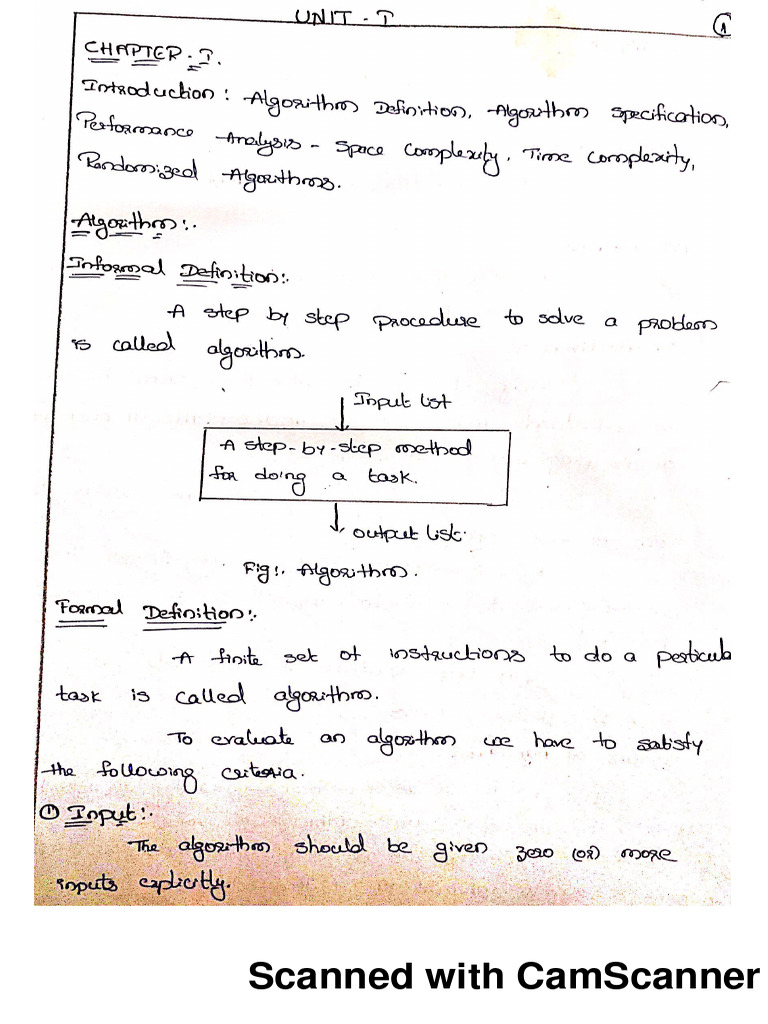 UNIT - I
1
CHAPTER - I.
Introduction : Algorithm Definition, Algorithm Specification,
Performance Analysis - Space Complexity, Time complexity,
Randomized Algorithms.
Algorithm:-
Informal Definition:-
A step by step procedure to solve a problem
is called algorithm.
Input list
A step-by-step method
for doing a task.
output list.
Fig:- Algorithm.
Formal Definition:-
A finite set of instructions to do a perticula
task is called algorithm.
To evaluate an algorithm we have to satisfy
the following criteria.
(1) Input:-
The algorithm should be given zero (or) more
inputs explicitly.
Scanned with CamScanner